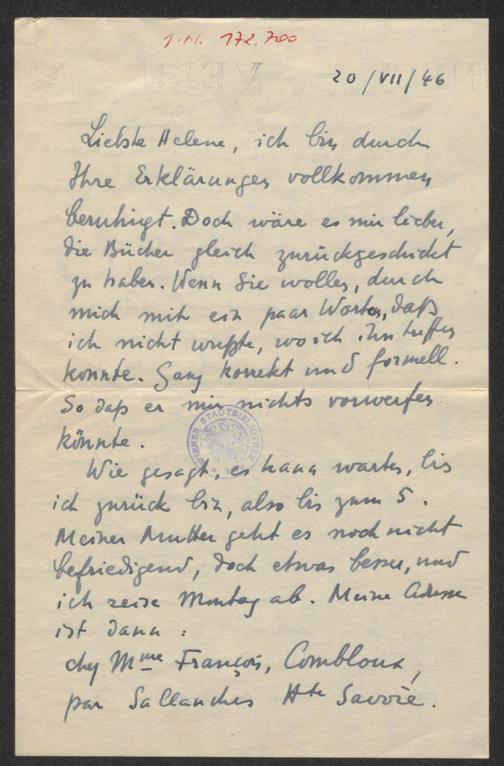 J.N. 172.700
20/VII/46
Liebste Helene, ich bin durch
Ihre Erklärungen vollkommen
beruhigt. Doch wäre es mir lieber,
die Bücher gleich zurückgeschickt
zu haben. Wenn Sie wollen, durch
mich mit ein paar Worten, daß
ich nicht wußte, wo ich ihn treffen
konnte. Ganz korrekt und formell.
So daß er mir nichts vorwerfen
könnte.
WIENER STADTBIBLIOTHEK
Wie gesagt, es kann warten, bis
ich zurück bin, also bis zum 5.
Meiner Mutter geht es noch nicht
befriedigend, doch etwas besser, und
ich reise Montag ab. Meine Adresse
ist dann:
chez Mme François, Combloux,
par Sallanches Hte Savoie.